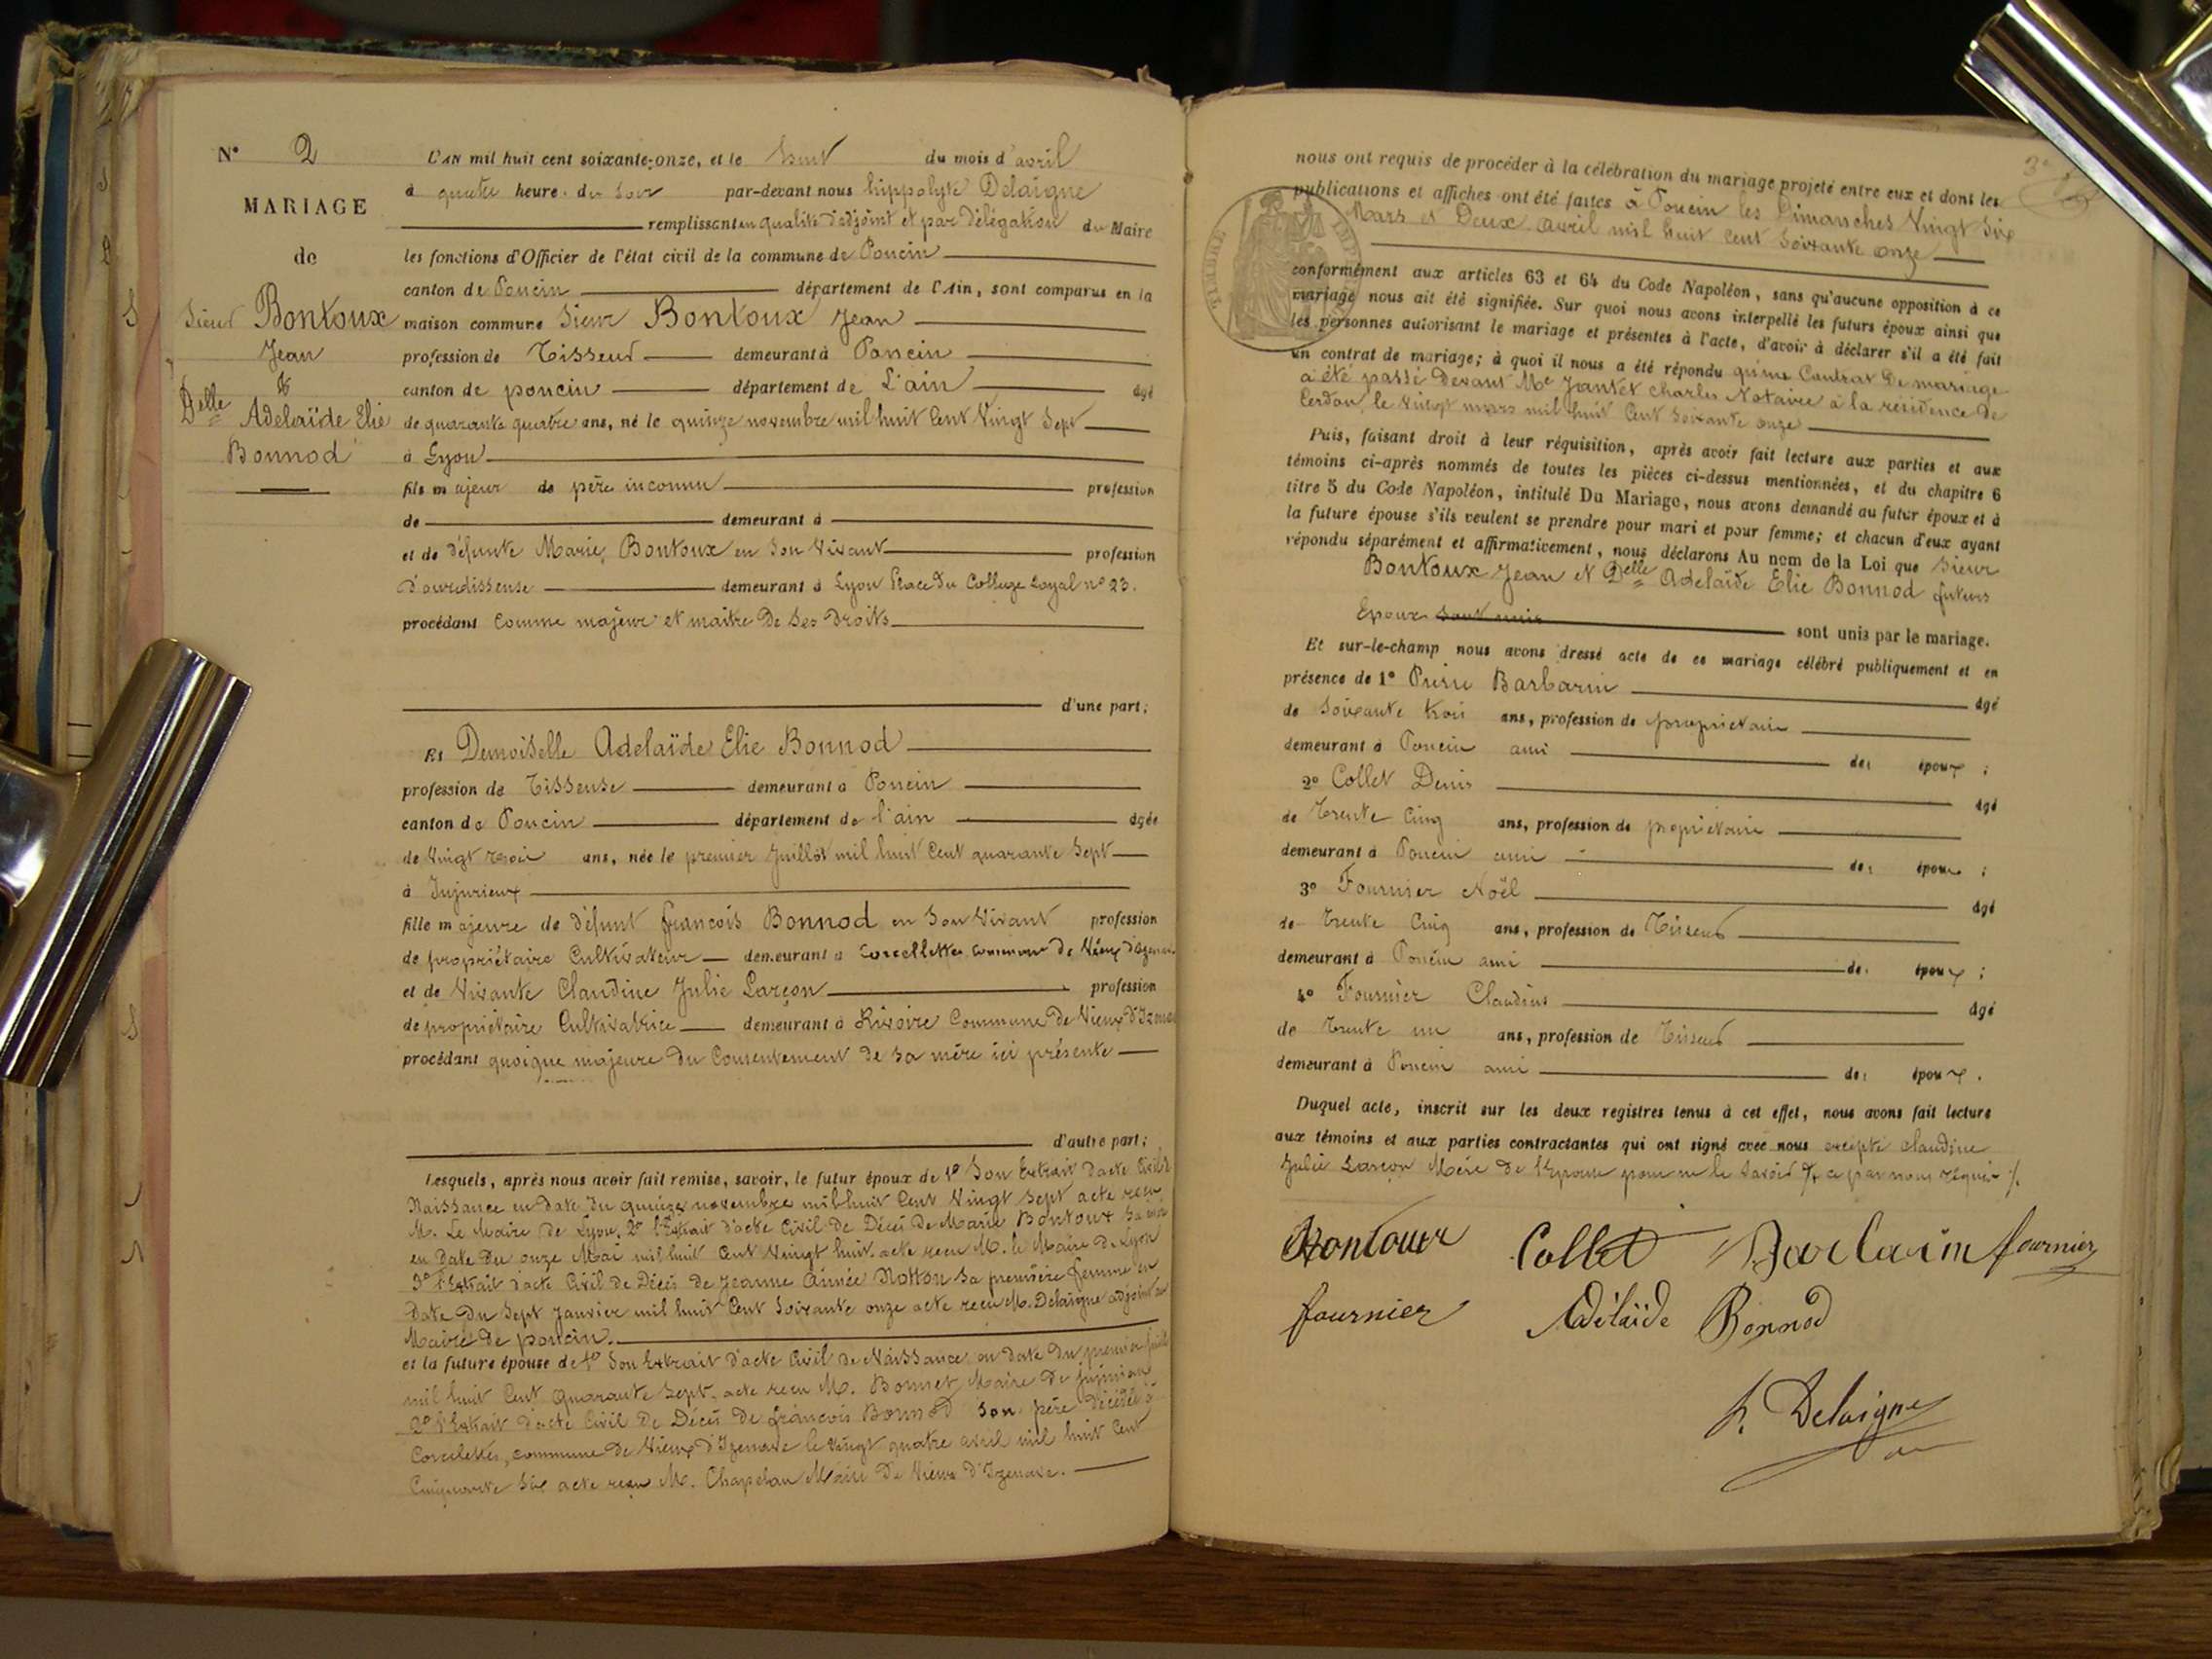 N° 2
MARIAGE
de
Sieur Bontoux
Jean
&
Delle Adelaïde Elie
Bonnod
L'AN mil huit cent soixante-onze, et le huit du mois d'avril
à quatre heure. du soir par-devant nous hippolyte Delaigne
remplissant en qualité d'adjoint et par Délégation du Maire
les fonctions d'Officier de l'état civil de la commune de Poncin
canton de Poncin département de l'Ain, sont comparus en la
maison commune Sieur Bontoux Jean
profession de Tisseur demeurant à Poncin
canton de poncin département de L'ain âgé
de quarante quatre ans, né le quinze novembre mil huit Cent Vingt Sept
à Lyon
fils majeur de père inconnu profession
de demeurant à
et de défunte Marie Bontoux en son Vivant profession
d'ourdisseuse demeurant à Lyon Place du College Loyal n° 23.
procédant Comme majeur et maitre De Ses Droits
d'une part;
Et Demoiselle Adelaïde Elie Bonnod
profession de Tisseuse demeurant à Poncin
canton de Poncin département de l'ain âgée
de Vingt trois ans, née le premier Juillet mil huit Cent quarante Sept
à Jujurieux
fille majeure de défunt françois Bonnod en Son Vivant profession
de propriétaire Cultivateur demeurant à Corcellettes Commune De Vieux d'Izenave
et de Vivante Claudine Julie Larçon profession
de propriétaire Cultivatrice demeurant à Rivoire Commune De Vieux D'Izenave
procédant quoique majeure du Consentement de sa mère ici présente
d'autre part;
Lesquels, après nous avoir fait remise, savoir, le futur époux de 1° Son Extrait d'acte Civil de
Naissance en date du quinze novembre mil huit Cent Vingt Sept acte reçu
M. Le Maire de Lyon, 2° l'Extrait d'acte Civil de Décès de Marie Bontoux Sa mère
en date du onze Mai mil huit Cent Vingt huit acte reçu M. le Maire de Lyon
3° l'Extrait d'acte Civil de Décès de Jeanne Aimée Notton Sa première femme en
Date du Sept Janvier mil huit Cent Soixante onze acte reçu M. Delaigne adjoint au
Maire de poncin.
et la future épouse de 1° Son Extrait d'acte Civil de Naissance en date du premier juillet
mil huit Cent quarante Sept, acte reçu M. Bonnet Maire de Jujurieux
2° l'Extrait d'acte Civil de Décès de françois Bonnod Son père décédé à
Corcelettes, commune de Vieux d'Izenave le Vingt quatre avril mil huit Cent
Cinquante Six acte reçu M. Chapelan Maire De Vieux d'Izenave.
nous ont requis de procéder à la célébration du mariage projeté entre eux et dont les
publications et affiches ont été faites à Poncin les Dimanches Vingt Six
Mars et Deux avril mil huit Cent Soixante onze
conformément aux articles 63 et 64 du Code Napoléon, sans qu'aucune opposition à ce
mariage nous ait été signifiée. Sur quoi nous avons interpellé les futurs époux ainsi que
les personnes autorisant le mariage et présentes à l'acte, d'avoir à déclarer s'il a été fait
un contrat de mariage; à quoi il nous a été répondu qu'un Contrat De mariage
a été passé Devant Me Jantet Charles Notaire à la résidence de
Cerdon, le Vingt mars mil huit Cent Soixante onze
Puis, faisant droit à leur réquisition, après avoir fait lecture aux parties et aux
témoins ci-après nommés de toutes les pièces ci-dessus mentionnées, et du chapitre 6
titre 5 du Code Napoléon, intitulé Du Mariage, nous avons demandé au futur époux et à
la future épouse s'ils veulent se prendre pour mari et pour femme; et chacun d'eux ayant
répondu séparément et affirmativement, nous déclarons Au nom de la Loi que Sieur
Bontoux Jean et Delle Adelaïde Elie Bonnod futurs
Epoux sont unis sont unis par le mariage.
Et sur-le-champ nous avons dressé acte de ce mariage célébré publiquement et en
présence de 1° Pierre Barbarin âgé
de Soixante trois ans, profession de propriétaire
demeurant à Poncin ami des époux;
2° Collet Denis âgé
de Trente Cinq ans, profession de propriétaire
demeurant à Poncin ami des époux;
3° Fournier Noël âgé
de Trente Cinq ans, profession de Tisseur
demeurant à Poncin ami des époux;
4° Fournier Claudius âgé
de Trente un ans, profession de Tisseur
demeurant à Poncin ami des époux.
Duquel acte, inscrit sur les deux registres tenus à cet effet, nous avons fait lecture
aux témoins et aux parties contractantes qui ont signé avec nous excepté Claudine
Julie Larçon Mère de l'Epouse pour ne le Savoir de ce par nous réquis
Bontoux Collet Barbarin fournier
fournier Adélaïde Bonnod
h. Delaigne